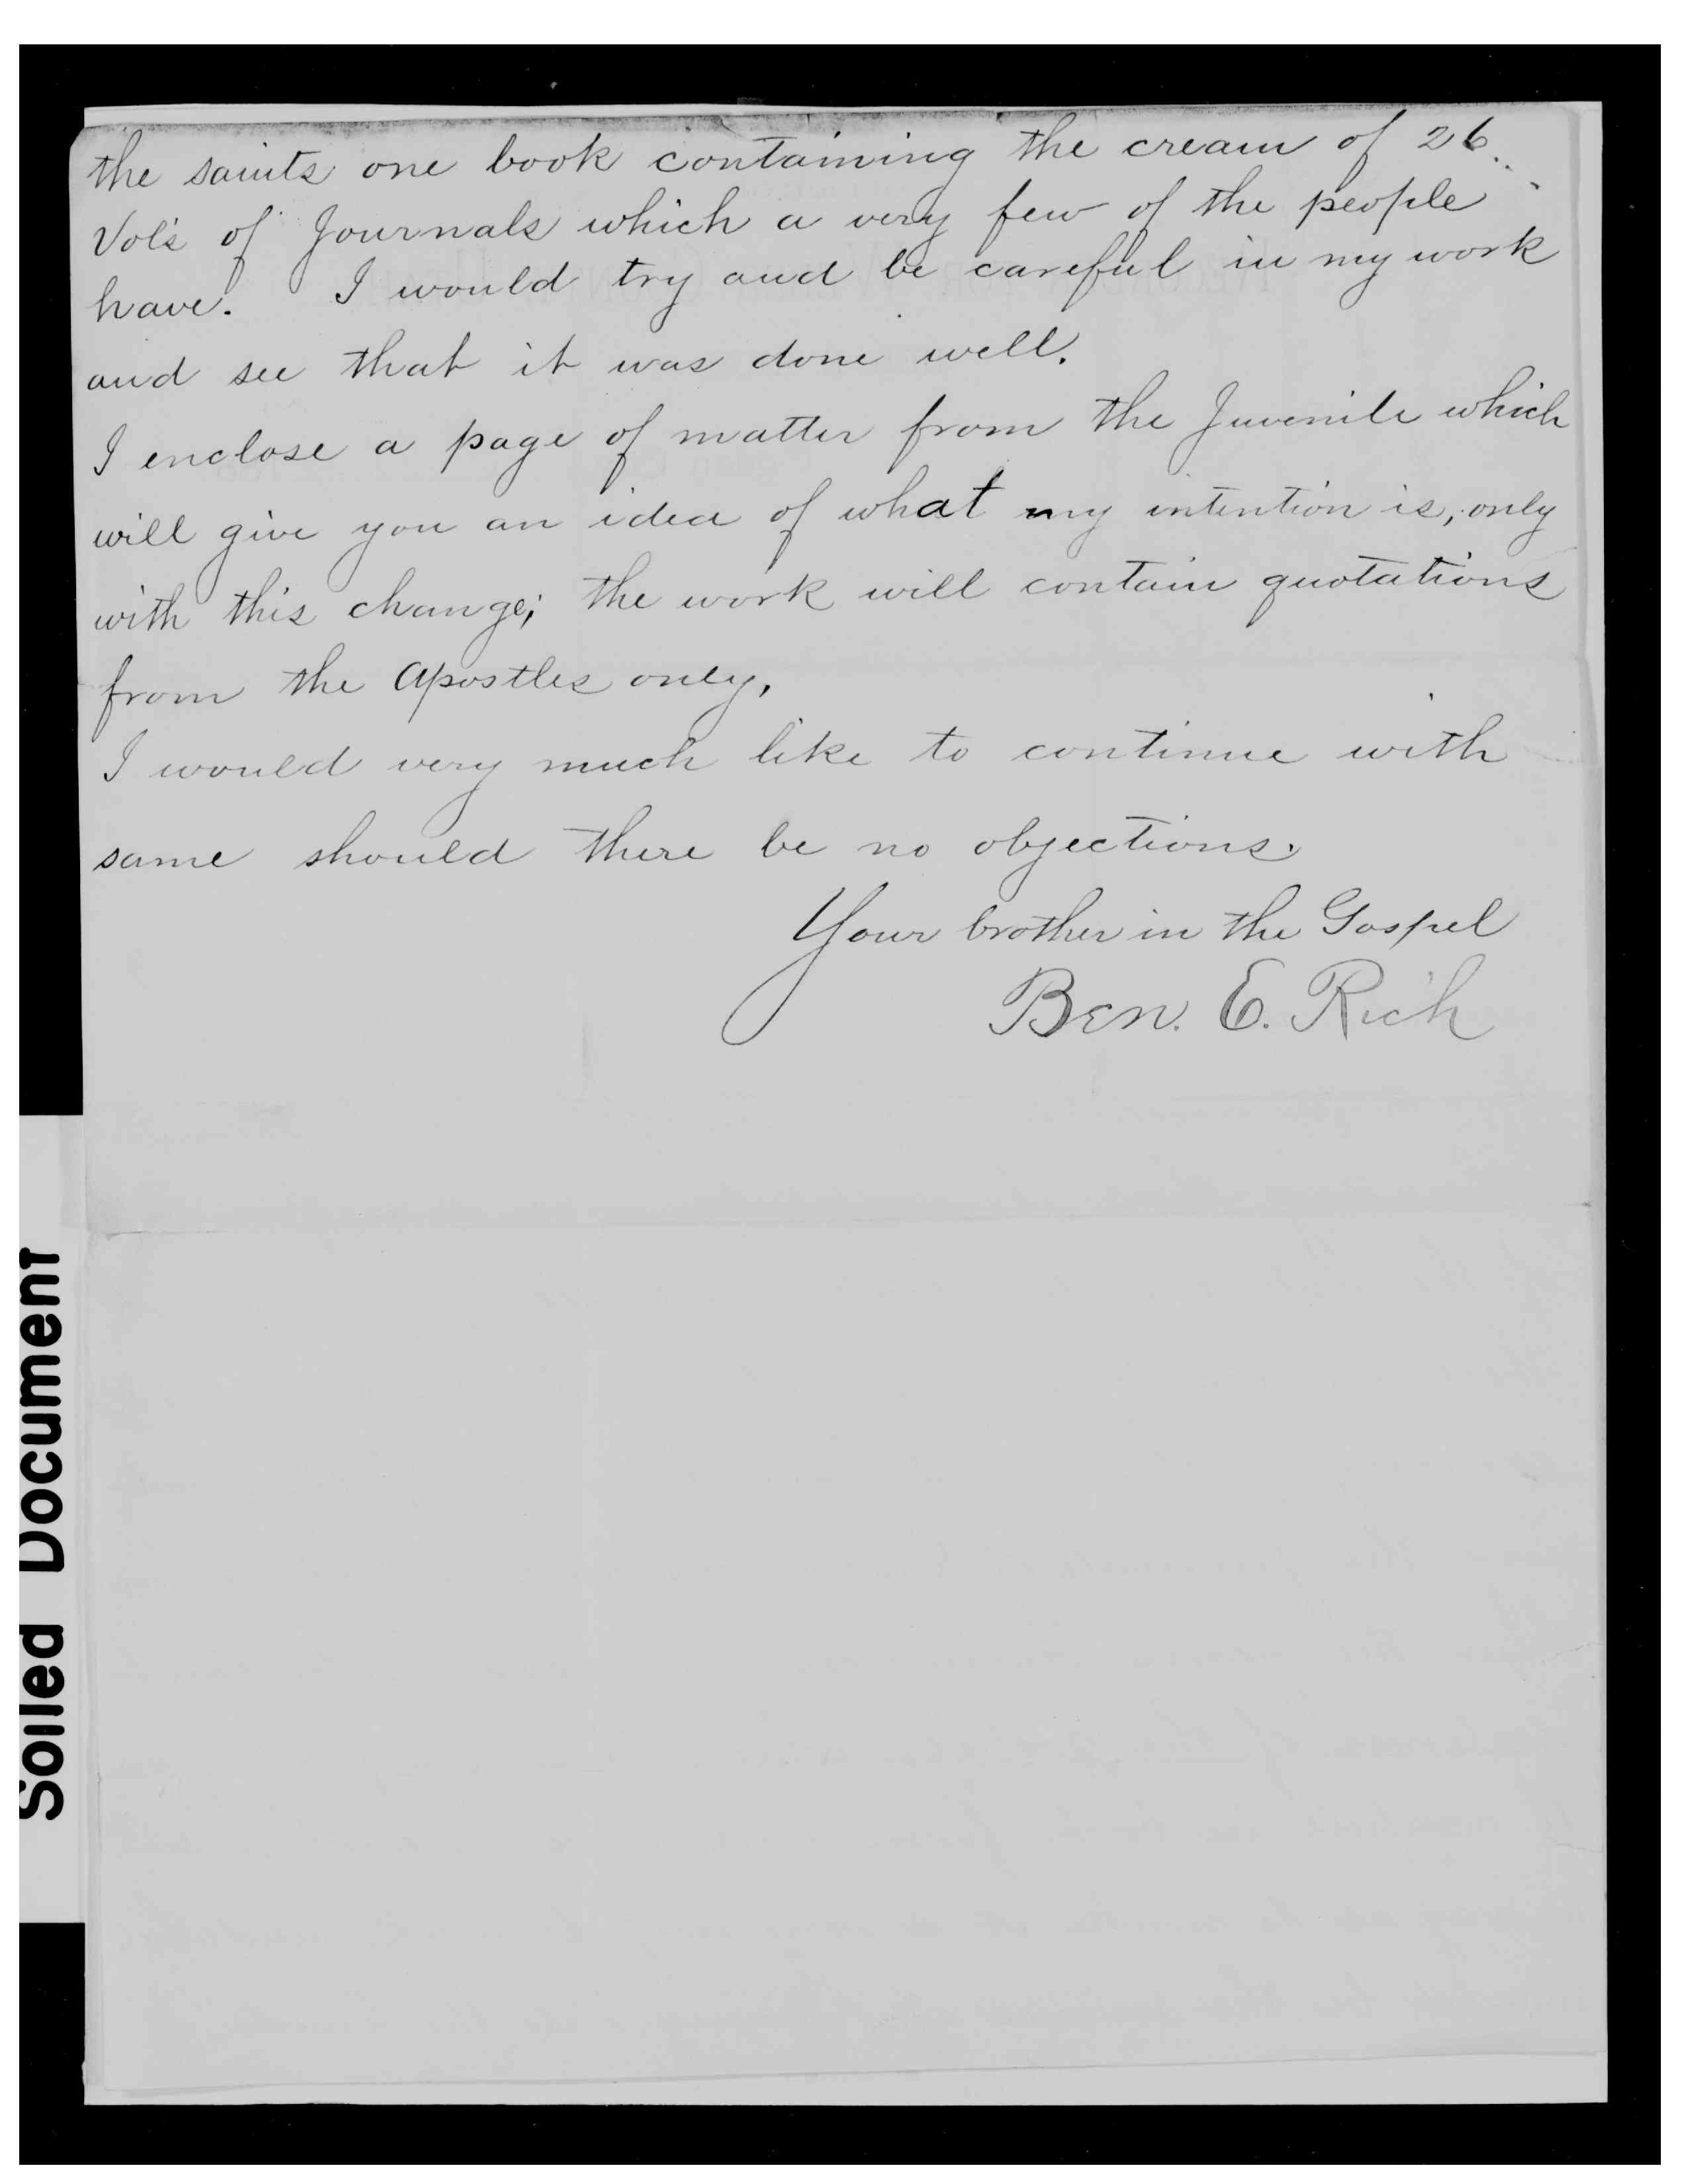 the saints one book containing the cream of 26
Vol's of Journals which a very few of the people
have. I would try and be careful in my work
and see that it was done well.
I enclose a page of matter from the Juvenile which
will give you an idea of what my intention is, only
with this change; the work will contain quotations
from the Apostles only.
I would very much like to continue with
same should there be no objections.
Your brother in the Gospel
Ben. E. Rich
Soiled Document